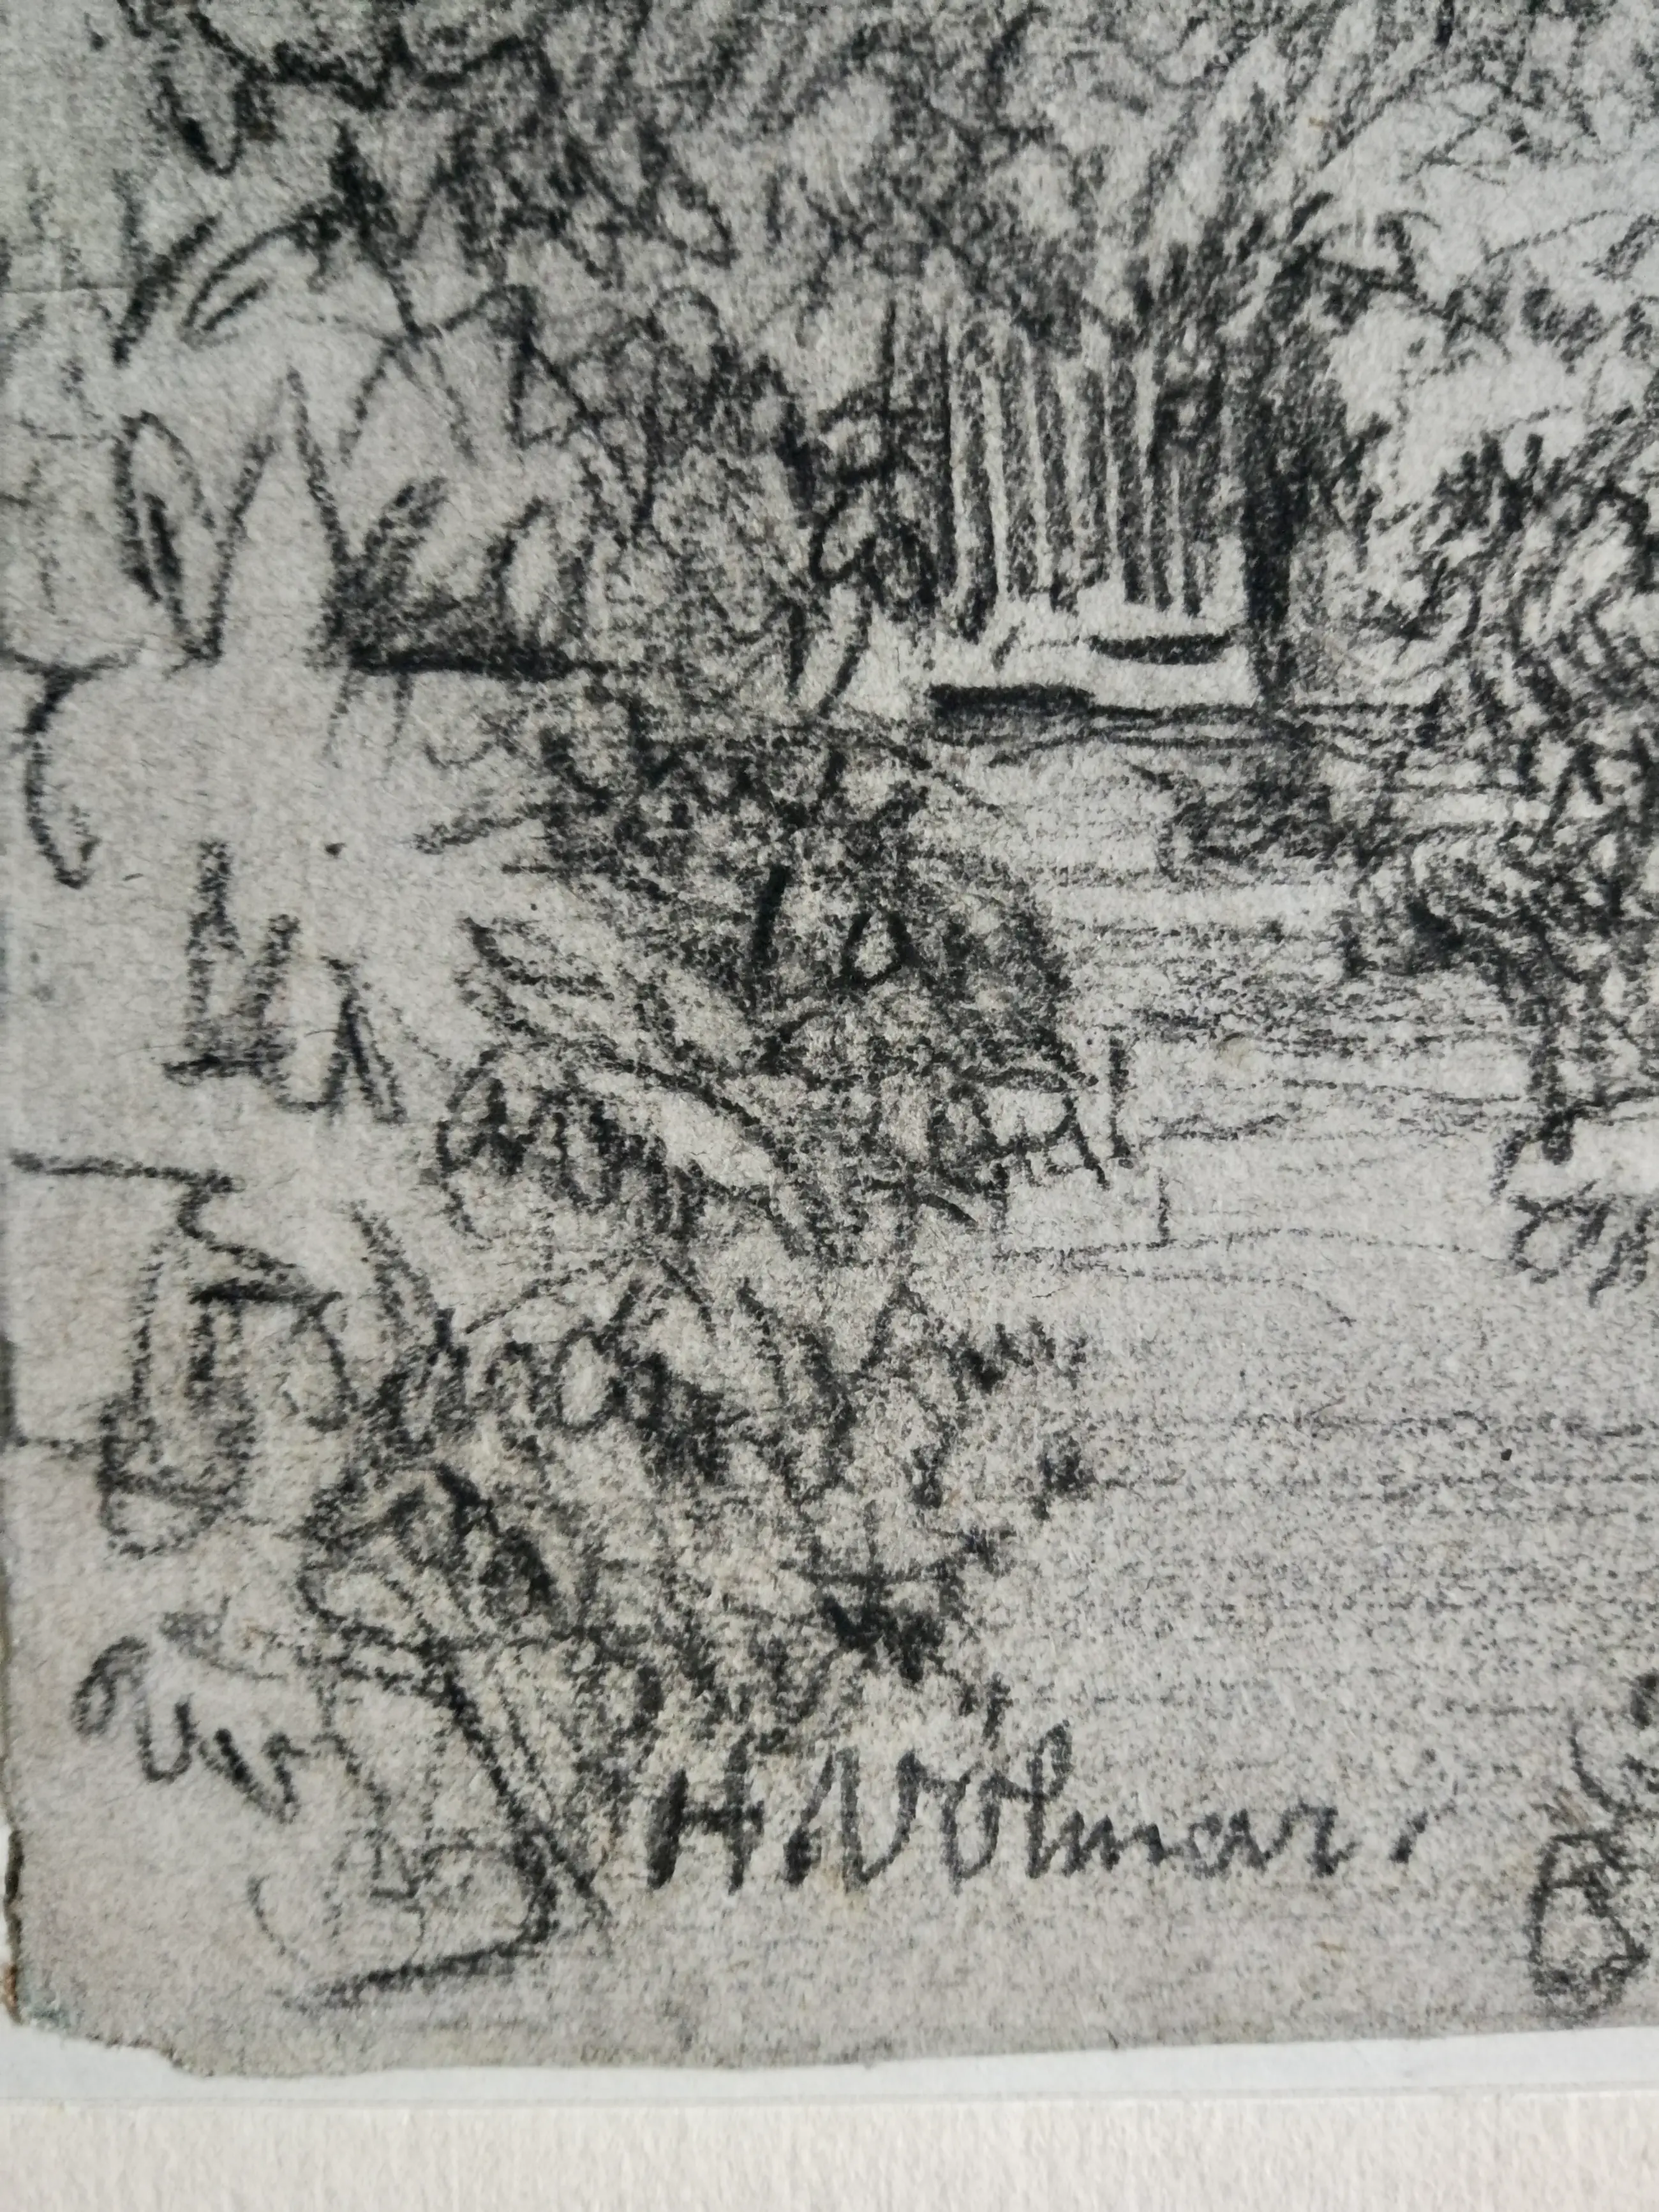 H. Volmar.